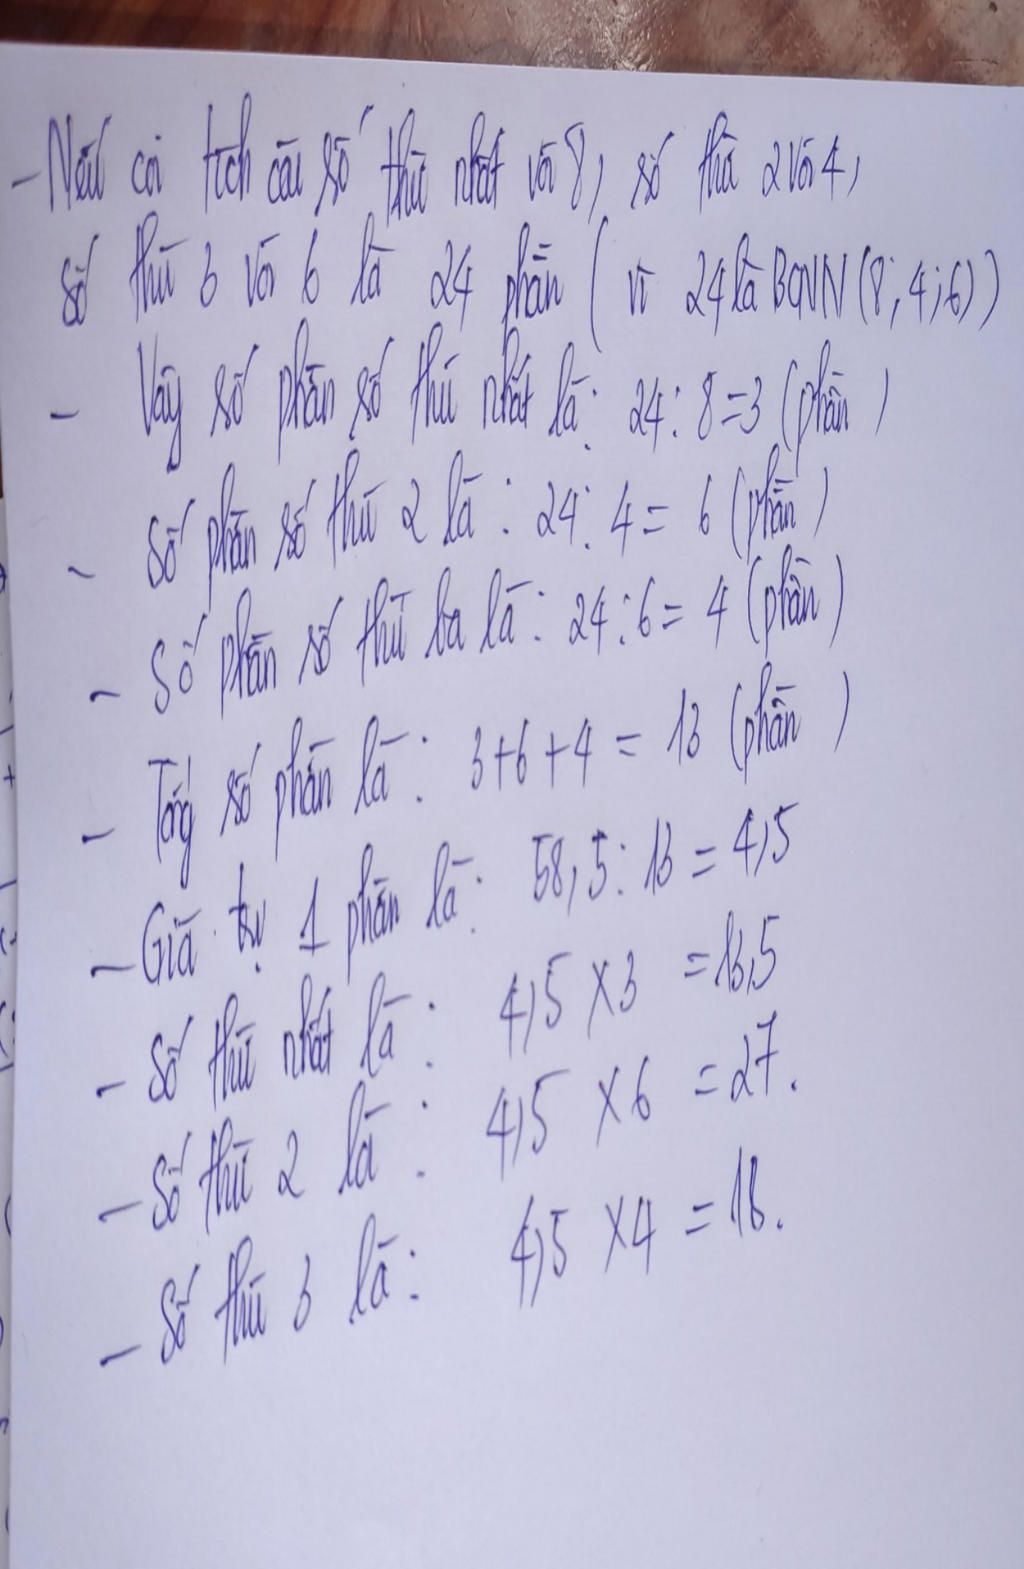 - Nếu coi tích của số thứ nhất với 8, số thứ 2 với 4,
số thứ 3 với 6 là 24 phần (vì 24 là BCNN (8; 4; 6))
- Vậy số phần số thứ nhất là: 24 : 8 = 3 (phần)
- Số phần số thứ 2 là: 24 : 4 = 6 (phần)
- Số phần số thứ ba là: 24 : 6 = 4 (phần)
- Tổng số phần là: 3 + 6 + 4 = 13 (phần)
- Giá trị 1 phần là: 58,5 : 13 = 4,5
- Số thứ nhất là: 4,5 x 3 = 13,5
- Số thứ 2 là: 4,5 x 6 = 27.
- Số thứ 3 là: 4,5 x 4 = 18.